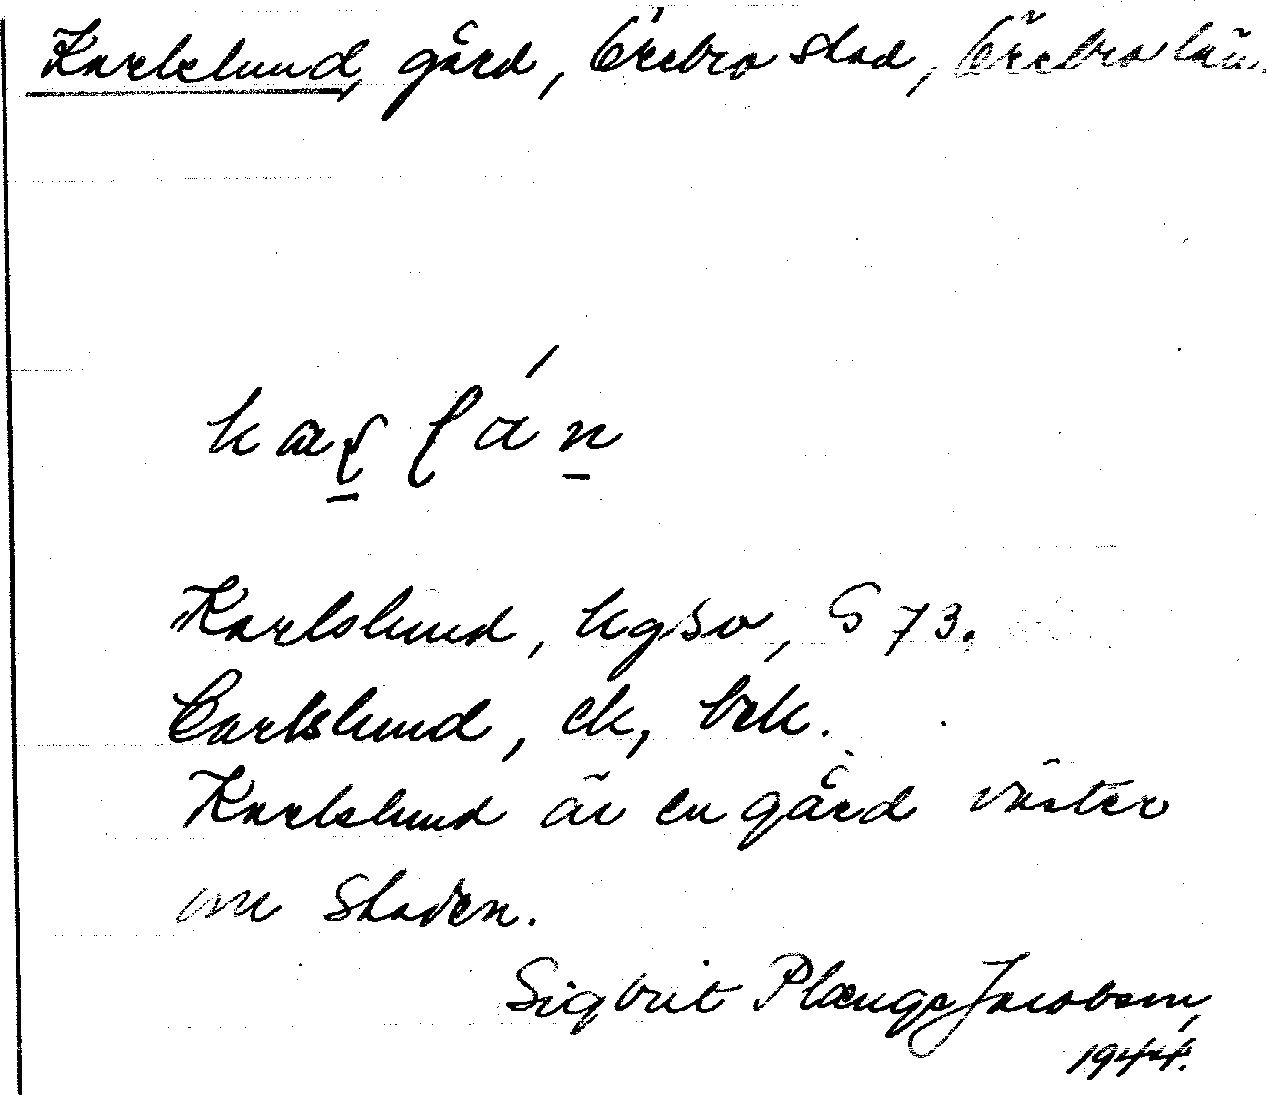 Karlslund, gård, Örebro stad, Örebro län.
Karlslund, hgsv, G 73.
Carlslund, ek, bek.
Karlslund är en gård väster
om staden.
Sigbrit Plænge Jacobson,
1944.